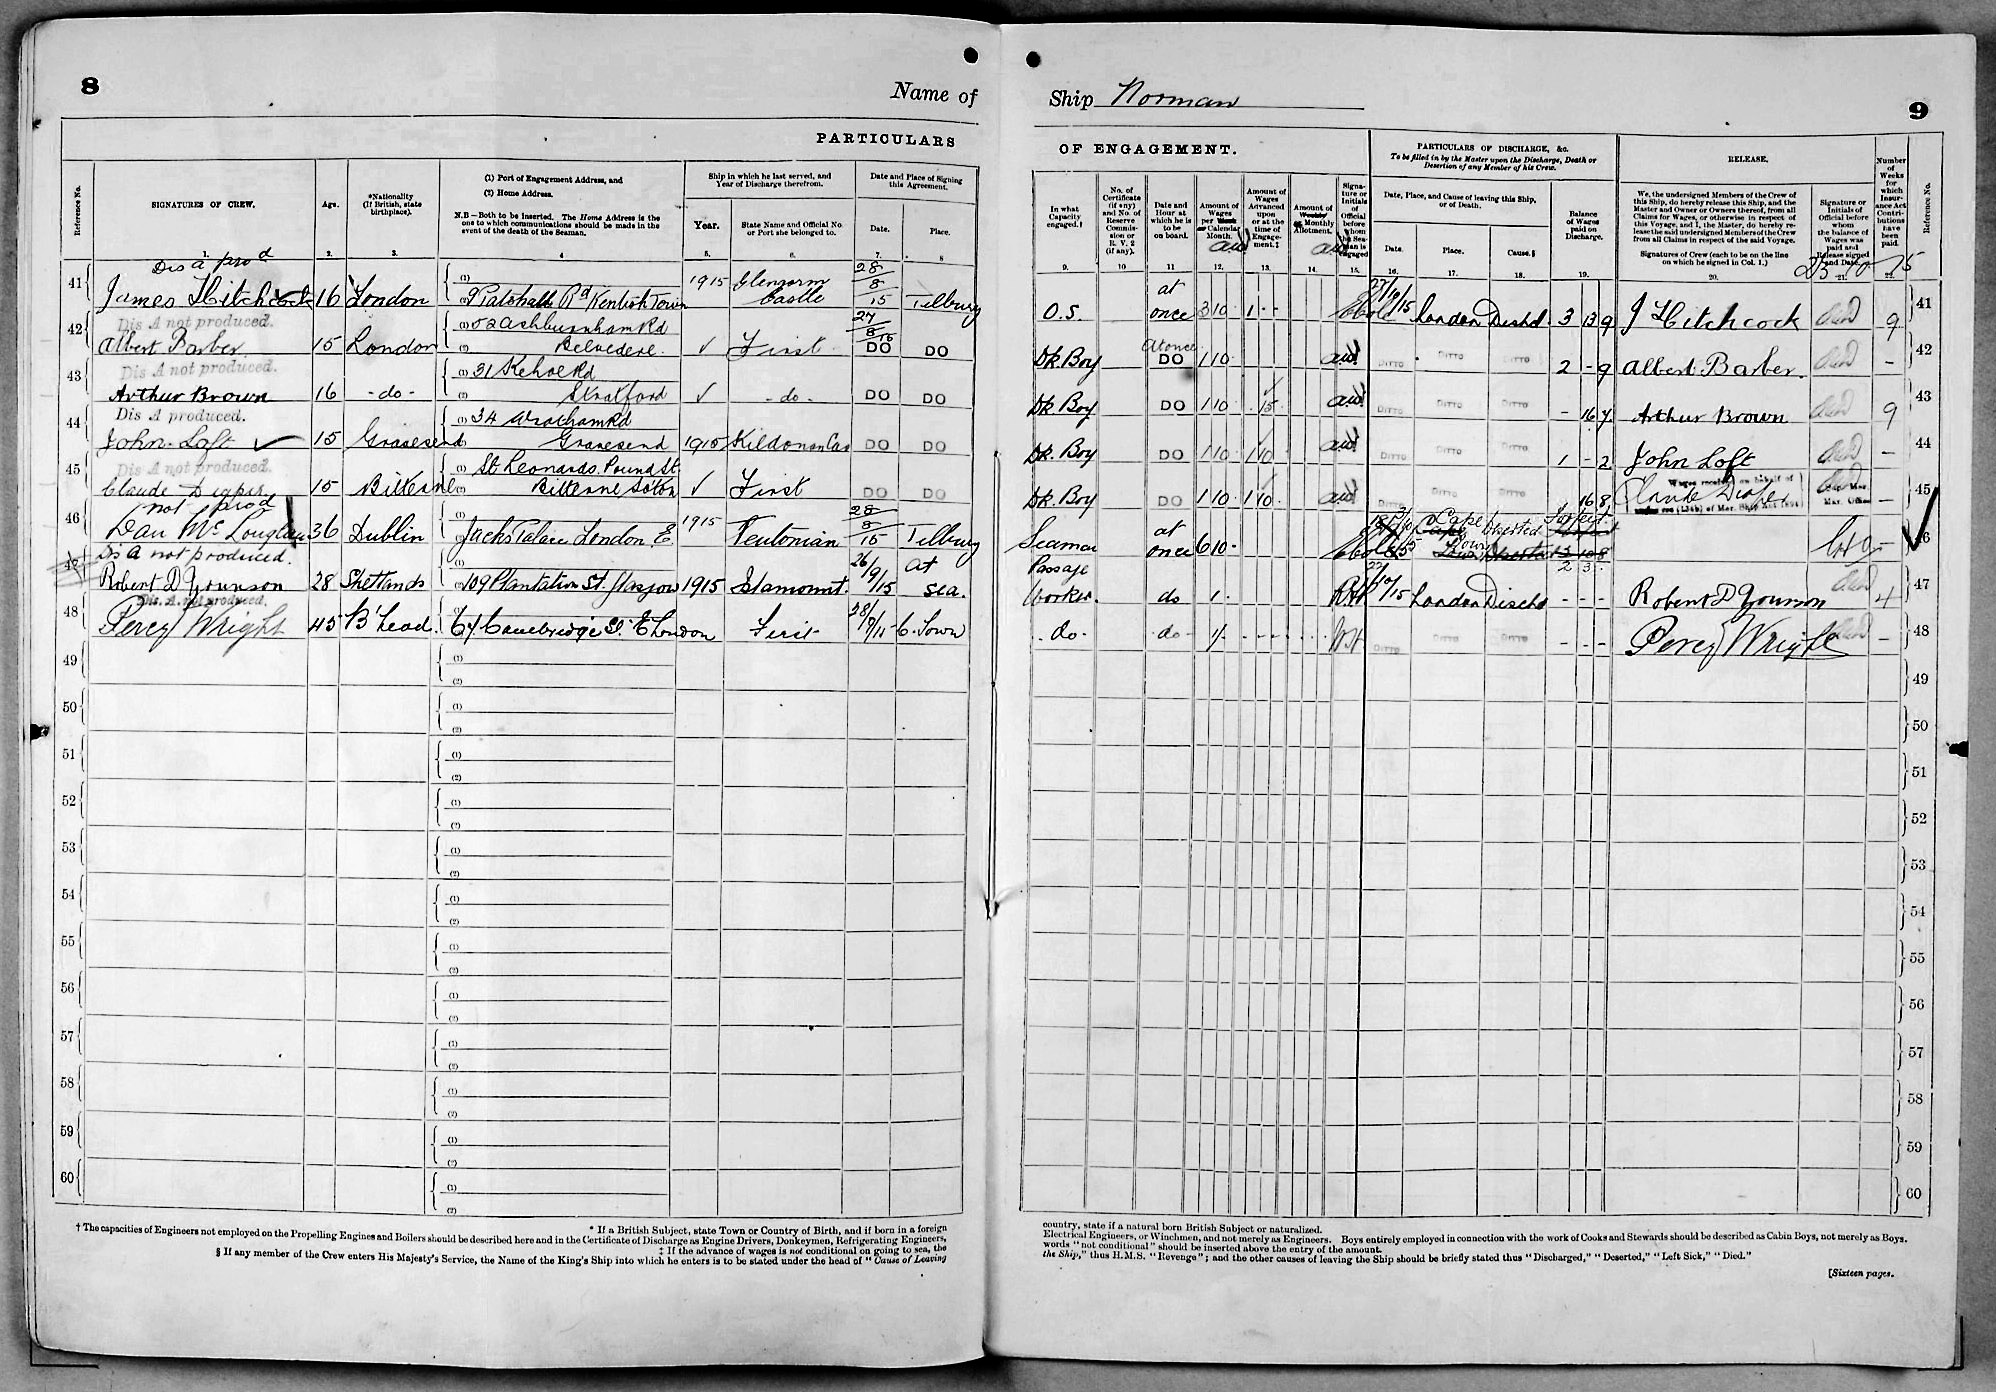 8
Name of
PARTICULARS
Reference No.
SIGNATURES OF CREW.
Age.
*Nationality
(If British, state
birthplace).
(1) Port of Engagement Address, and
(2) Home Address.
N.B—Both to be inserted. The Home Address is the
one to which communications should be made in the
event of the death of the Seaman.
Ship in which he last served, and
Year of Discharge therefrom.
Year.
State Name and Official No.
or Port she belonged to.
Date and Place of Signing
this Agreement.
Date.
Place.
1. 2. 3. 4 5. 6. 7. 8
Dis A prod
41 James Hitchcock 16 London (1)
(2) 9 Patshall Rd Kentish Town 1915 Glengorm Castle 28/8/15 Tilbury
Dis A not produced.
42 Albert Barber 15 London (1) 52 Ashburnham Rd
(2) Belvedere. ✓ First 27/8/15 DO DO
Dis A not produced.
43 Arthur Brown 16 -do- (1) 31 Kehoe Rd
(2) Stratford ✓ -do- DO DO
Dis A produced.
44 John Loft ✓ 15 Gravesend (1) 34 Wrotham Rd
(2) Gravesend 1915 Kildonan Cas DO DO
Dis A not produced.
45 Claude Diaper 15 Bitterne (1) St Leonards. Pound St.
(2) Bitterne Soton ✓ First DO DO
not prod
46 Dan McLouglan 36 Dublin (1)
Jacks Palace London. E. 1915 Teutonian 28/8/15 Tilbury
Dis A not produced.
47 Robert D Younson 28 Shetlands (1)
(2) 109 Plantation St. Glasgow 1915 Stamount. 26/9/15 at sea.
Dis. A. not produced.
48 Percy Wright 45 B'head. (1)
67 Cambridge St. E London First C. Town
49 (1)
(2)
50 (1)
(2)
51 (1)
(2)
52 (1)
(2)
53 (1)
(2)
54 (1)
(2)
55 (1)
(2)
56 (1)
(2)
57 (1)
(2)
58 (1)
(2)
59 (1)
(2)
60 (1)
(2)
† The capacities of Engineers not employed on the Propelling Engines and Boilers should be described here and in the Certificate of Discharge as Engine Drivers, Donkeymen, Refrigerating Engineers,
* If a British Subject, state Town or Country of Birth, and if born in a foreign
‡ If the advance of wages is not conditional on going to sea, the
§ If any member of the Crew enters His Majesty's Service, the Name of the King's Ship into which he enters is to be stated under the head of "Cause of Leaving
Ship Norman
9
OF ENGAGEMENT.
PARTICULARS OF DISCHARGE, &c.
To be filled in by the Master upon the Discharge, Death or
Desertion of any Member of his Crew.
RELEASE.
In what
Capacity
engaged.†
No. of
Certificate
(if any)
and No. of
Reserve
Commis-
sion or
R. V. 2
(if any).
Date and
Hour at
which he is
to be
on board.
Amount of
Wages
per Week
or Calendar
Month.
Amount of
Wages
Advanced
upon
or at the
time of
Engage-
ment.‡
Amount of
Weekly
or Monthly
Allotment.
Signa-
ture or
Initials
of
Official
before
whom
the Sea-
man is
engaged
Date, Place, and Cause of leaving this Ship,
or of Death.
Date.
Place.
Cause.§
Balance
of Wages
paid on
Discharge.
We, the undersigned Members of the Crew of
this Ship, do hereby release this Ship, and the
Master and Owner or Owners thereof, from all
Claims for Wages, or otherwise in respect of
this Voyage, and I, the Master, do hereby re-
lease the said undersigned Members of the Crew
from all Claims in respect of the said Voyage.
Signatures of Crew (each to be on the line
on which he signed in Col. 1.)
Signature or
Initials of
Official before
whom
the balance of
Wages was
paid and
Release signed
and Date.
Number
of
Weeks
for
which
Insur-
ance Act
Contri-
butions
have
been
paid.
Reference No.
9. 10 11 12. 13. 14 15. 16. 17. 18. 19. 20. 21. 22.
O.S. at once 3 10 1 - - 27/10/15 London Dischd. 3 13 9 J Hitchcock 9 41
Dk. Boy At once DO 1 10 DITTO DITTO DITTO 2 - 9 Albert Barber. - 42
Dk Boy DO 1 10 15 DITTO DITTO DITTO - 16 7 Arthur Brown 9 43
Dk. Boy DO 1 10 1 10 DITTO DITTO 1 - 2 John Loft - 44
Dk Boy DO 1 10 1 10 DITTO DITTO DITTO 16 8 Claude Diaper - 45
Wages received on behalf of
Seaman at once 6 10 - Cape Town Deserted Forfeit 2 3 -
Passage Worker. do 1 - London Disch - - - Robert D Younson 4 47
-do- do 1/- DITTO DITTO DITTO - - - Percy Wright - 48
49
50
51
52
53
54
55
56
57
58
59
60
country, state if a natural born British Subject or naturalized.
Electrical Engineers, or Winchmen, and not merely as Engineers. Boys entirely employed in connection with the work of Cooks and Stewards should be described as Cabin Boys, not merely as Boys.
words "not conditional" should be inserted above the entry of the amount.
the Ship," thus H.M.S. "Revenge"; and the other causes of leaving the Ship should be briefly stated thus "Discharged," "Deserted," "Left Sick," "Died."
[Sixteen pages.